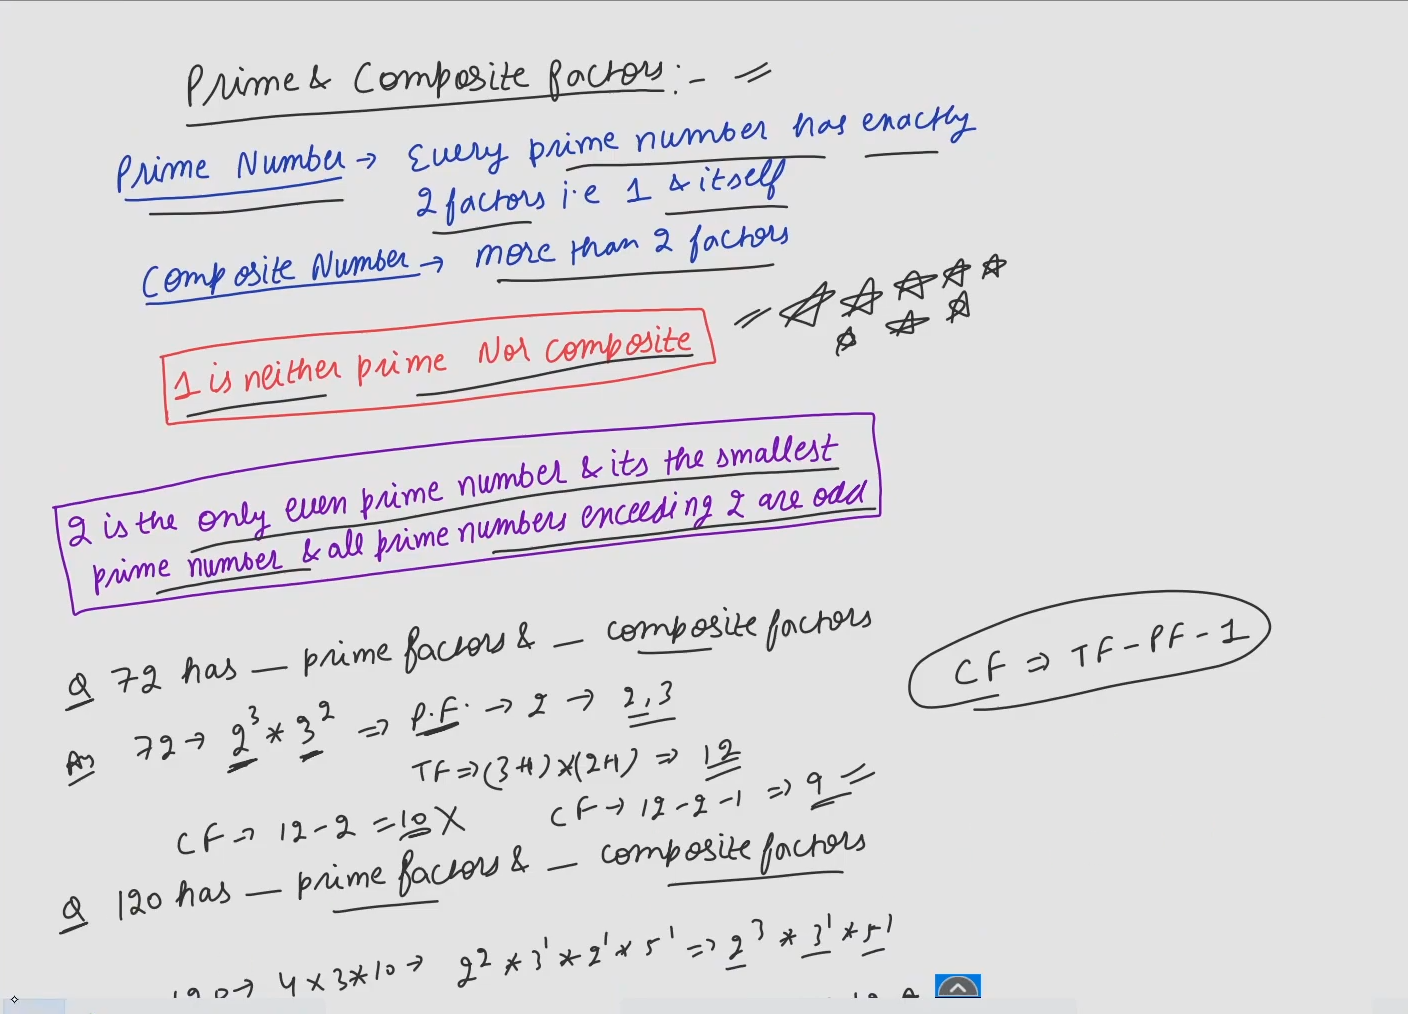 Prime & Composite factors :-
Prime Number → Every prime number has exactly
2 factors i.e 1 & itself
Composite Number → more than 2 factors
1 is neither prime Nor composite
2 is the only even prime number & its the smallest
prime number & all prime numbers exceeding 2 are odd
Q 72 has — prime factors & — composite factors
CF ⇒ TF - PF - 1
Ans 72 → 2³ * 3² ⇒ P.F. → 2 → 2,3
TF ⇒ (3+1) × (2+1) ⇒ 12
CF → 12-2 = 10 X
CF → 12-2-1 ⇒ 9
Q 120 has — prime factors & — composite factors
120 → 4 × 3 * 10 → 2² * 3¹ * 2¹ * 5¹ ⇒ 2³ * 3¹ * 5¹